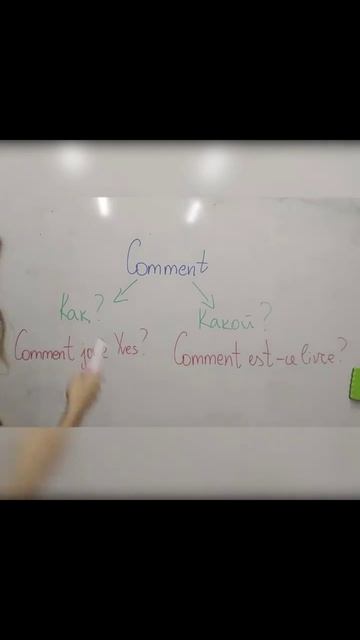 Comment
Как? Какой?
Comment joue Yves? Comment est-ce livre?